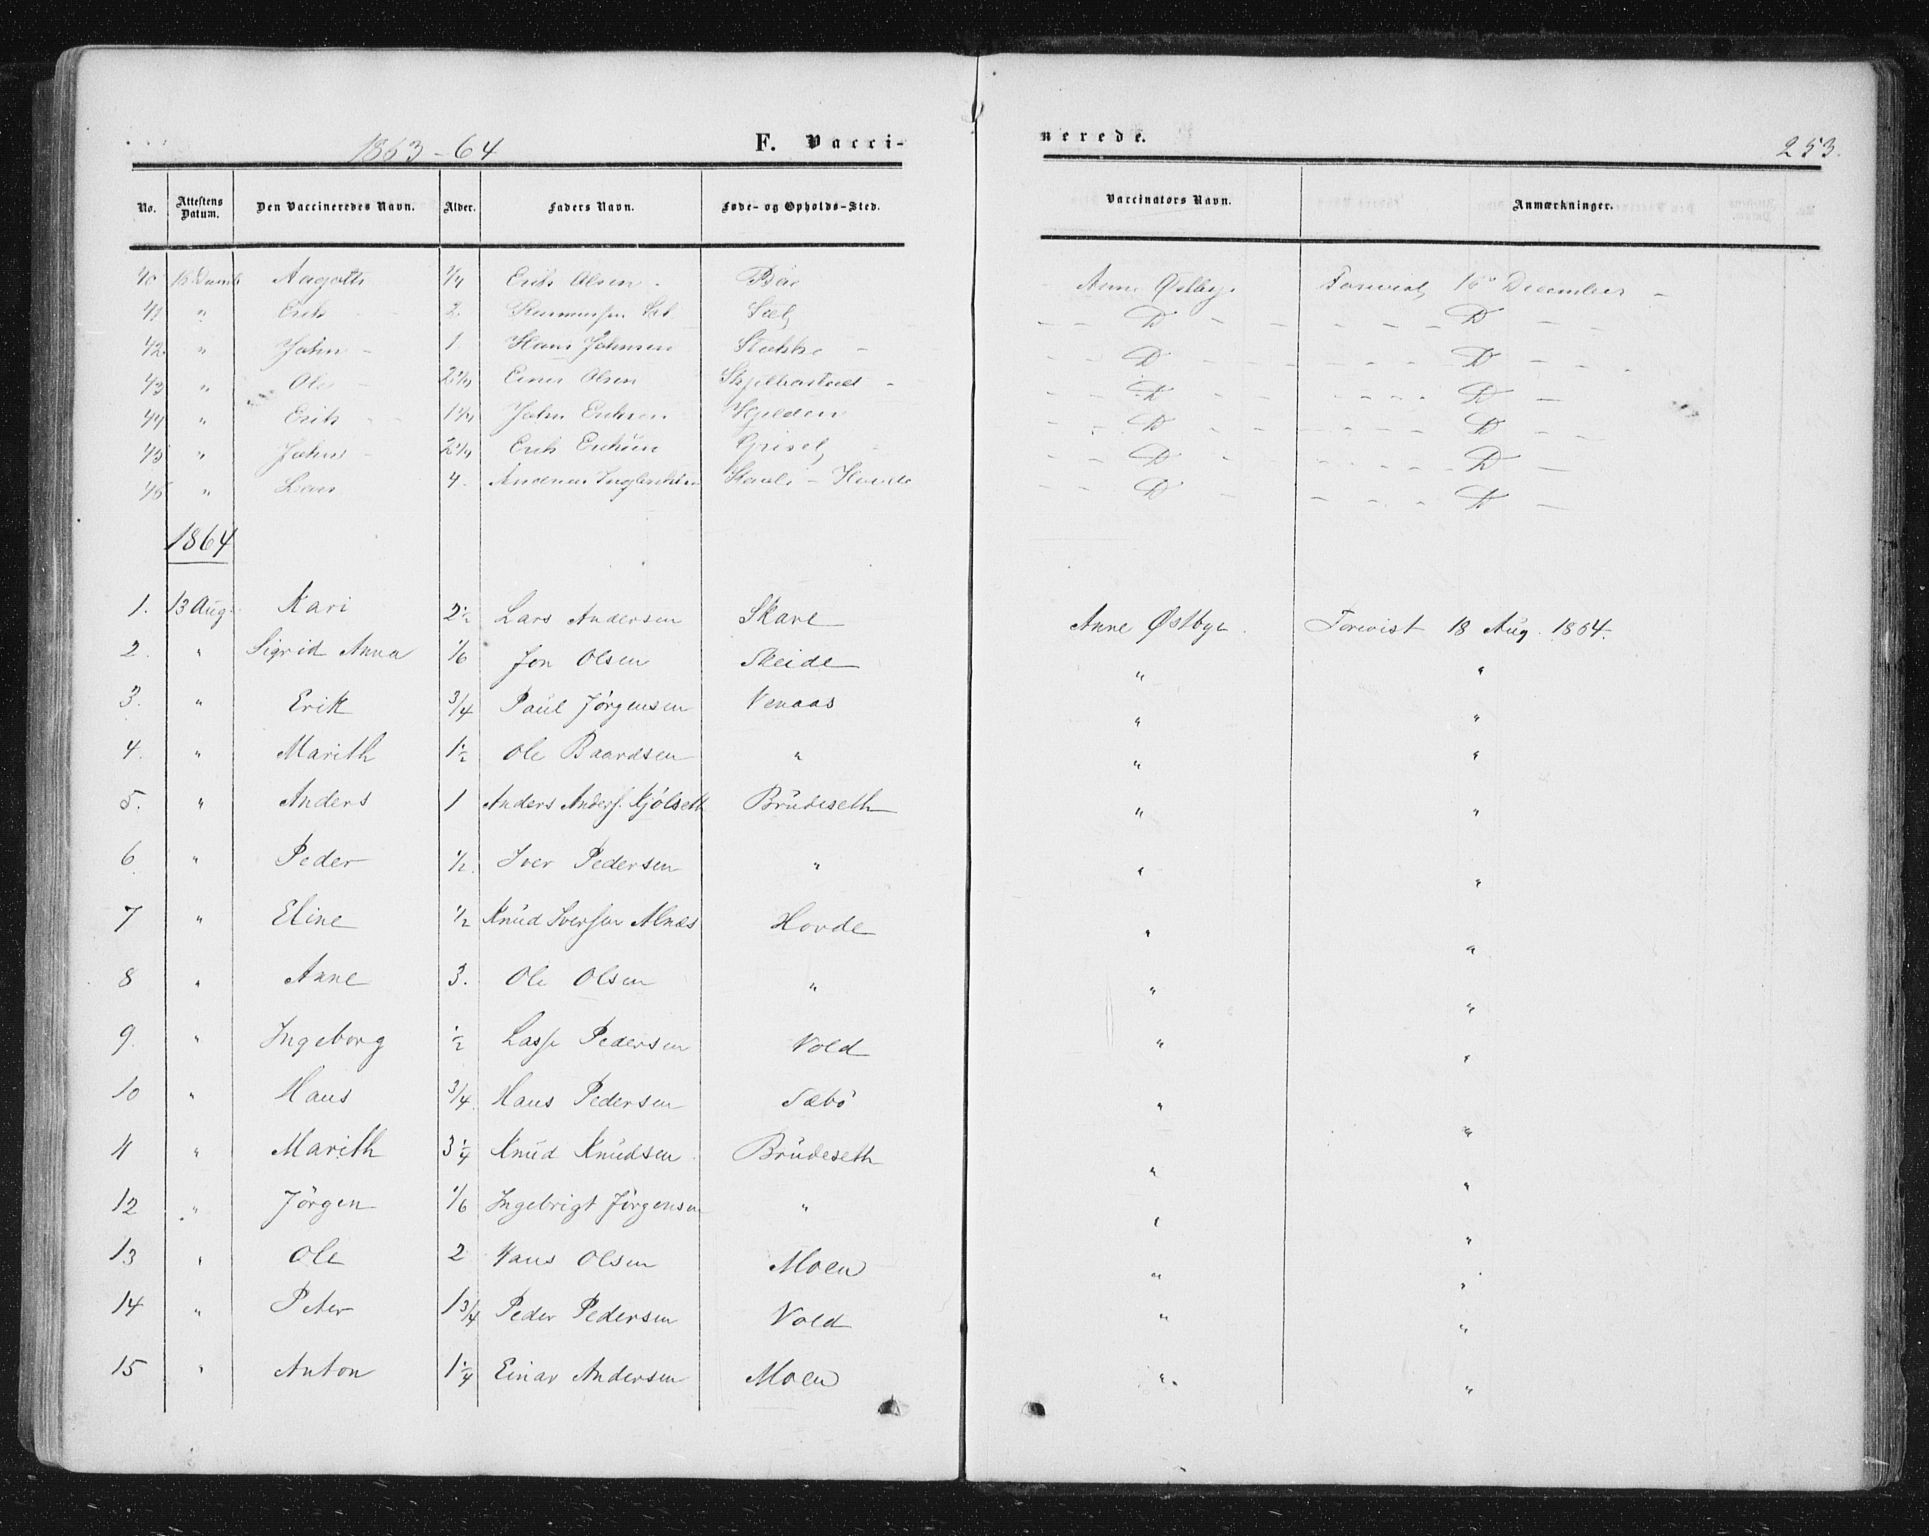 1863-64 F. Vacci- nerede. 253.
No. Attestens Datum. Den Vaccineredes Navn. Alder. Faders Navn. Føde- og Opholds-Sted. Vaccinators Navn. Anmærkninger.
40 Aagoth 1/4 Erik Olsen Böe Anne Østbye Forevist 16 December
41 " Erik 2. D D
42 " John 1. Hans Johnsen Stokke D D
43 " Ole 2 1/4 Einer Olsen D D
44 " Erik 1 1/4 John Eriksen D D
45 " John 2 1/4 Erik D D
46 " Lars 4. D D
1864
1. 13 Aug. Kari 2 1/2 Lars Andersen Skare Anne Østbye. Forevist 18 Aug. 1864.
2. " Sigrid Anna 1/6 Jon Olsen Skeide " "
3. " Erik 3/4 Paul Jørgensen Venaas " "
4. " Marith 1 1/2 Ole Baardsen " " "
5. " Anders 1 Anders Anders. Kjölseth Brüdeseth " "
6 " Peder 1/2. Iver Pedersen " " "
7 " Eline 1/2 Knüd Iversen Alnæs Hovde " "
8 " Anne 3. Ole Olsen " " "
9. " Ingeborg 1/2 Lasse Pedersen Vold " "
10 " Hans 3/4. Hans Pedersen Sæbö " "
11 " Marith 3 1/4 Knüd Knüdsen. Brüdeseth " "
12 " Jörgen 1/6 Ingebrigt Jørgensen " " "
13 " Ole 2 Hans Olsen Moen " "
14 " Peter 1 3/4 Peder Pedersen Vold " "
15 " Anton 1 1/4 Einar Andersen Moen " "